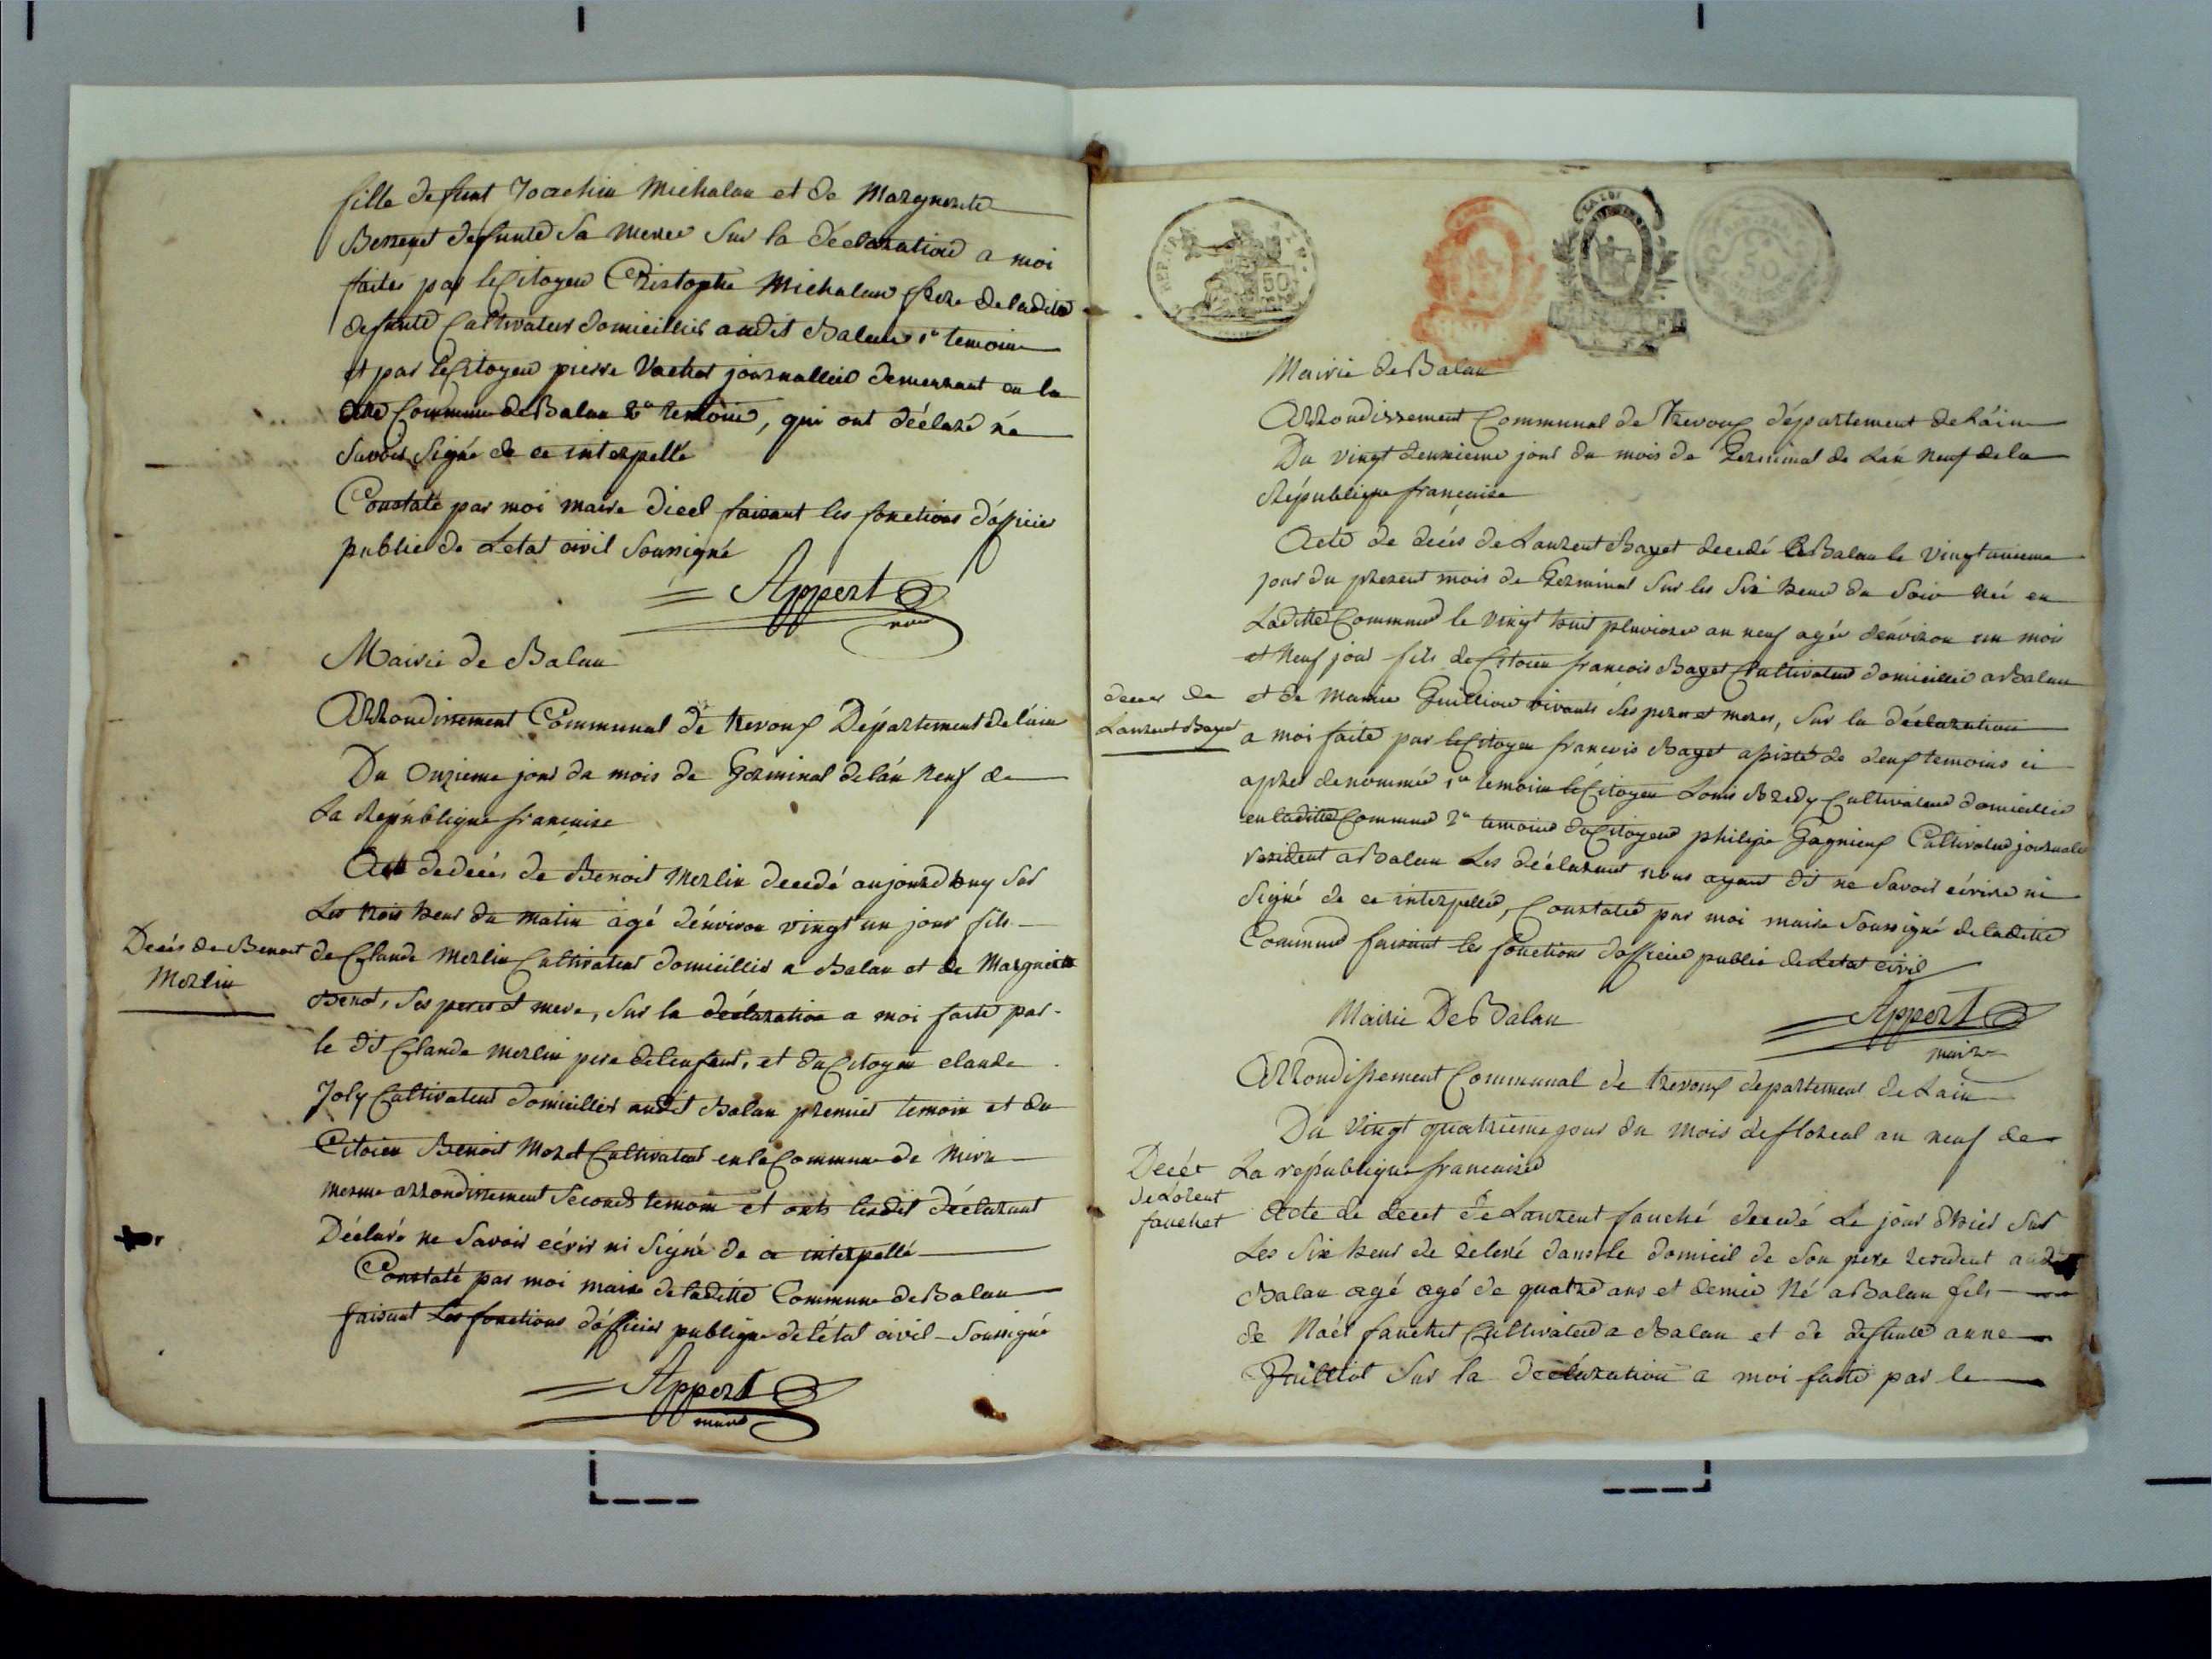 fille defunt Joachin Michalau et de Marguerite
defunte Sa merre Sur la déclaration a moi
faites par le Citoyen Christophe Michalau frere de ladite
defunte Cultivateur domicillier audit Balan 1er temoin
et par le Citoyen pierre Vachet journallier demeurant en la
dite Commune de Balan 2e temoin, qui ont déclaré né
Savoir Signé de ce interpellé
Constaté par moi maire dicel faisant les fonctions d'officier
public de Letat civil Soussigné
Appert
maire
Mairie de Balan
Arrondissement Communal de trevoux Département de l'ain
Du Onzieme jour du mois de Germinal de l'án neuf de
La République francaise
Acte de decés de Benoit Merlin decedé aujourdhuy Sur
Les trois heur du matin agé d'énviron vingt un jour fils
Decés de Benoit
Merlin
de Claude Merlin Cultivateur domicillier a Balan et de Marguerite
Benot, Ses peres et mere, Sur la déclaration a moi faite par
le dit Claude Merlin pere de lenfant, et du Citoyen claude
Joly Cultivateur domicillier audit Balan premier temoin et du
Citoien Benoit Morel Cultivateur en la Commune de
mesme arrondissement Second temoin et onts lesdit déclarant
Déclaré ne Savoir eérir ni Signé de ce interpellé
Constaté par moi maire de laditte Commune de Balan
faisant Les fonctions d'officier publique de l'état civil Soussigné
Appert
maire
50
50
LA LOI
Mairie de Balan
Arrondissement Communal de Trevoux département de L'áin
Du vingt deuxieme jour du mois de Germinal de Lán neuf de la
République française
Acte de decés de Laurent Bayet decedé a Balan le vingt unieme
jour du present mois de Germinal Sur les Six heure du Soir Né en
Laditte Commune le vingt huit pluviose an neuf agée d'énviron un mois
et Neuf jour fils de Citoien francois Bayet Cultivateur domicillié a Balan
deces de
Laurent Bayet
et de Marie Guillion vivants Ses peres et meres, Sur la déclaration
a moi faite par le Citoyen francois Bayet assisté de deux temoins ci
apres denommée 1er temoin le Citoyen Louis Bredy Cultivateur domicillié
en laditte Commune 2e temoin du Citoyen philipe Gagnieux Cultivateur journalié
resident a Balan Les déclarant nous ayant dit né Savoir eérire ni
Signé de ce interpellée, Constatée par moi maire Soussigné de laditte
Commune faisant les fonctions dofficier public de Letat civil
Appert
maire
Mairie De Balan
Arrondissement Communal de trevoux departement de Lain
Du Vingt quatrieme jour du mois de floreal an neuf de
La république francaise
Decét
de Lorent
fauchet
Acte de decet de Laurent fauché decedé Le jour dhier Sur
Les Six heur de relevé dans le domicil de Son pere resident audit
Balan agé agé de quatre ans et demie Né a Balan fils
de Noél fauchet Cultivateur a Balan et de defunte anne
Guilliot Sur la déclaration a moi faite par le